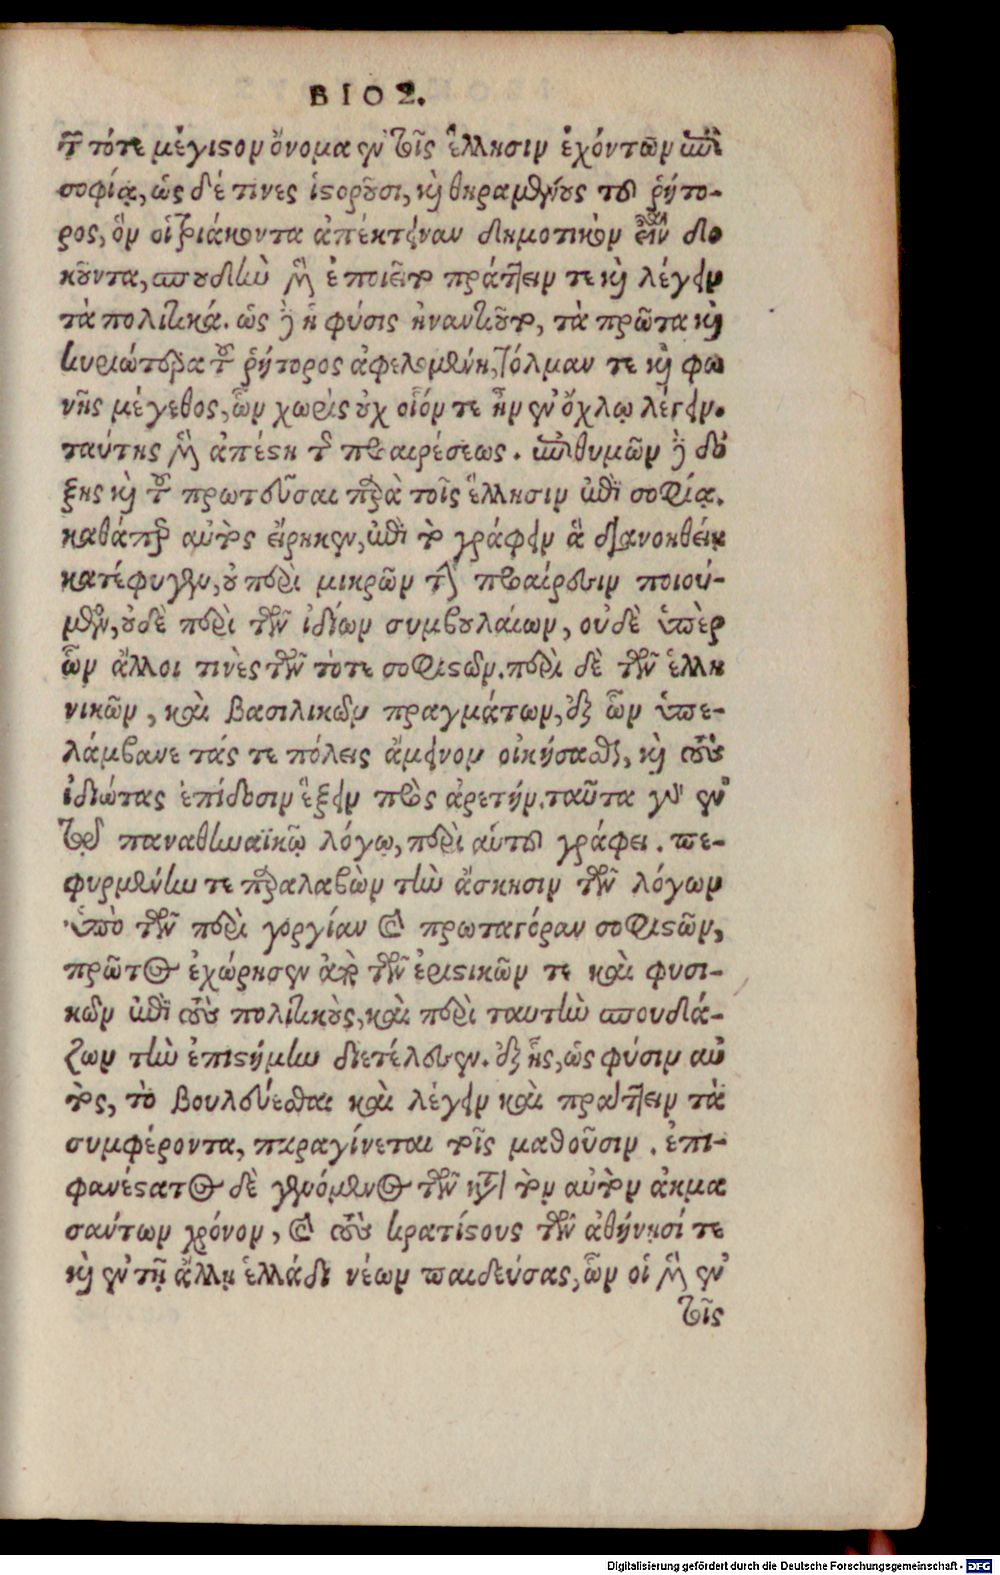 ΒΙΟΣ.
τῶν τότε μέγιστον ὄνομα ἐν τοῖς ἕλλησιν ἐχόντων ἐπὶ
σοφίᾳ, ὡς δέ τινες ἱστοροῦσι, καὶ θηραμένους τοῦ ῥήτο-
ρος, ὃν οἱ τριάκοντα ἀπέκτειναν δημοτικὸν εἶναι δο
κοῦντα, σπουδὴν μὲν ἐποιεῖτο πράττειν τε καὶ λέγειν
τὰ πολιτικά. ὡς δὲ ἡ φύσις ἠναντιοῦτο, τὰ πρῶτα καὶ
κυριώτερα τοῦ ῥήτορος ἀφελομένη, τόλμαν τε καὶ φω
νῆς μέγεθος, ὧν χωρὶς οὐχ οἷόν τε ἦν ἐν ὄχλῳ λέγειν.
ταύτης μὲν ἀπέστη τῆς προαιρέσεως. ἐπιθυμῶν δὲ δό
ξης καὶ τοῦ πρωτεῦσαι παρὰ τοῖς ἕλλησιν ἐπὶ σοφίᾳ.
καθάπερ αὐτὸς εἴρηκεν, ἐπὶ τὸ γράφειν ἃ διανοηθείη
κατέφυγεν, οὐ περὶ μικρῶν τὴν προαίρεσιν ποιού-
μενος, οὐδὲ περὶ τῶν ἰδίων συμβολαίων, οὐδὲ ὑπὲρ
ὧν ἄλλοι τινὲς τῶν τότε σοφιστῶν. περὶ δὲ τῶν ἑλλη
νικῶν, καὶ βασιλικῶν πραγμάτων, ἐξ ὧν ὑπε-
λάμβανε τάς τε πόλεις ἄμεινον οἰκήσασθαι, καὶ τοὺς
ἰδιώτας ἐπίδοσιν ἕξειν πρὸς ἀρετήν. ταῦτα γὰρ ἐν
τῷ παναθηναϊκῷ λόγῳ, περὶ αὑτοῦ γράφει. πε-
φυρμένην τε παραλαβὼν τὴν ἄσκησιν τῶν λόγων
ὑπὸ τῶν περὶ γοργίαν καὶ πρωταγόραν σοφιστῶν,
πρῶτος ἐχώρησεν ἀπὸ τῶν ἐριστικῶν τε καὶ φυσι-
κῶν ἐπὶ τοὺς πολιτικούς, καὶ περὶ ταύτην σπουδά-
ζων τὴν ἐπιστήμην διετέλεσεν. ἐξ ἧς, ὥς φησιν αὐ
τὸς, τὸ βουλεύεσθαι καὶ λέγειν καὶ πράττειν τὰ
συμφέροντα, παραγίνεται τοῖς μαθοῦσιν. ἐπι-
φανέστατος δὲ γενόμενος τῶν κατὰ τὸν αὐτὸν ἀκμα
σάντων χρόνον, καὶ τοὺς κρατίστους τῶν ἀθήνησί τε
καὶ ἐν τῇ ἄλλῃ ἑλλάδι νέων παιδεύσας, ὧν οἱ μὲν ἐν
τοῖς
Digitalisierung gefördert durch die Deutsche Forschungsgemeinschaft - DFG